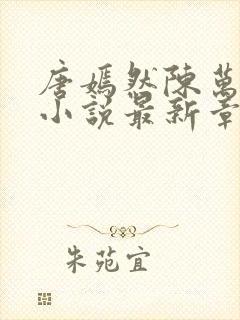 唐嫣然陳萬
小說最新章
朱苑宜